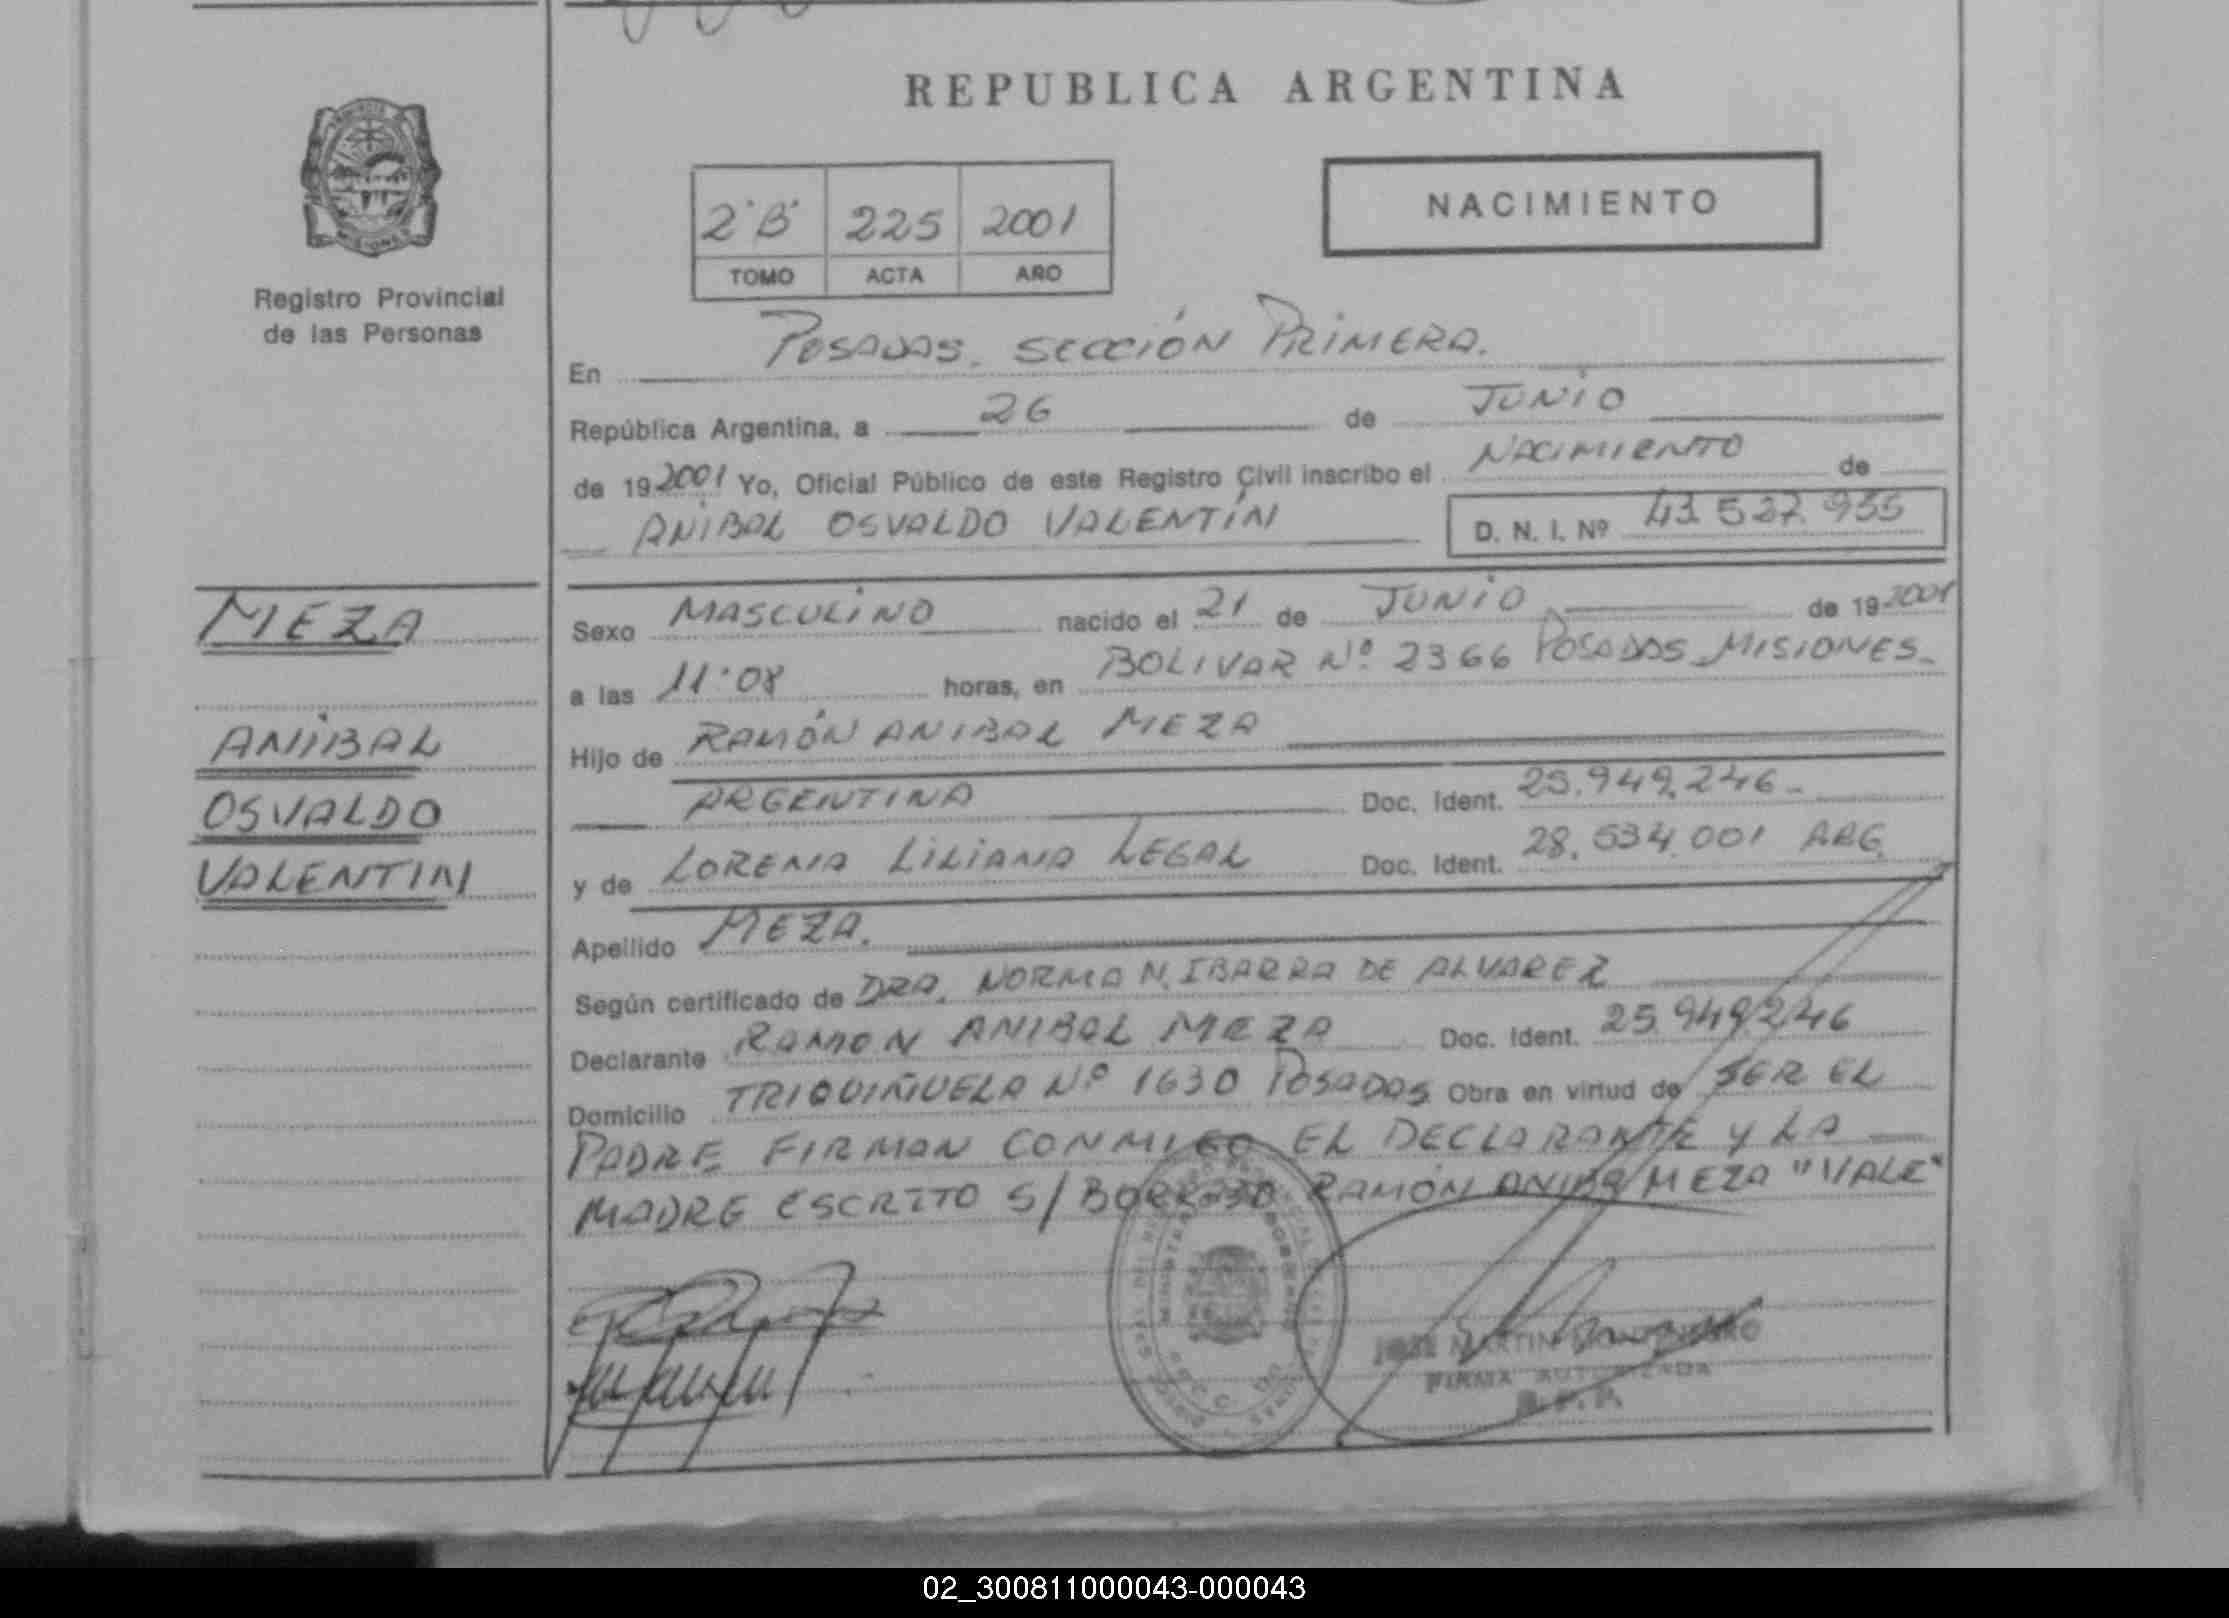 REPUBLICA ARGENTINA
NACIMIENTO
2° B° 225 2001
TOMO ACTA AÑO
Registro Provincial
de las Personas
En POSADAS. SECCIÓN PRIMERA.
República Argentina, a 26 de JUNIO
de 19 2001 Yo, Oficial Público de este Registro Civil inscribo el NACIMIENTO de
ANIBAL OSVALDO VALENTÍN D. N. I. Nº 43.527.955
MEZA
ANIBAL
OSVALDO
VALENTIN
Sexo MASCULINO nacido el 21 de JUNIO de 19 2001
a las 11:08 horas, en BOLIVAR Nº 2366 POSADAS MISIONES.
Hijo de RAMÓN ANIBAL MEZA
ARGENTINA Doc. Ident. 25.949.246.
y de LORENA LILIANA LEGAL Doc. Ident. 28.534.001 ARG.
Apellido MEZA.
Según certificado de DRA. NORMA N. IBARRA DE ALVAREZ
Declarante RAMON ANIBAL MEZA Doc. Ident. 25.949.246
Domicilio TRIQUIÑUELA Nº 1630 POSADAS Obra en virtud de SER EL
PADRE FIRMAN CONMIGO EL DECLARANTE Y LA
MADRE ESCRITO S/BORRADO RAMÓN ANIBAL MEZA "VALE"
FIRMA AUTORIZADA
02_300811000043-000043